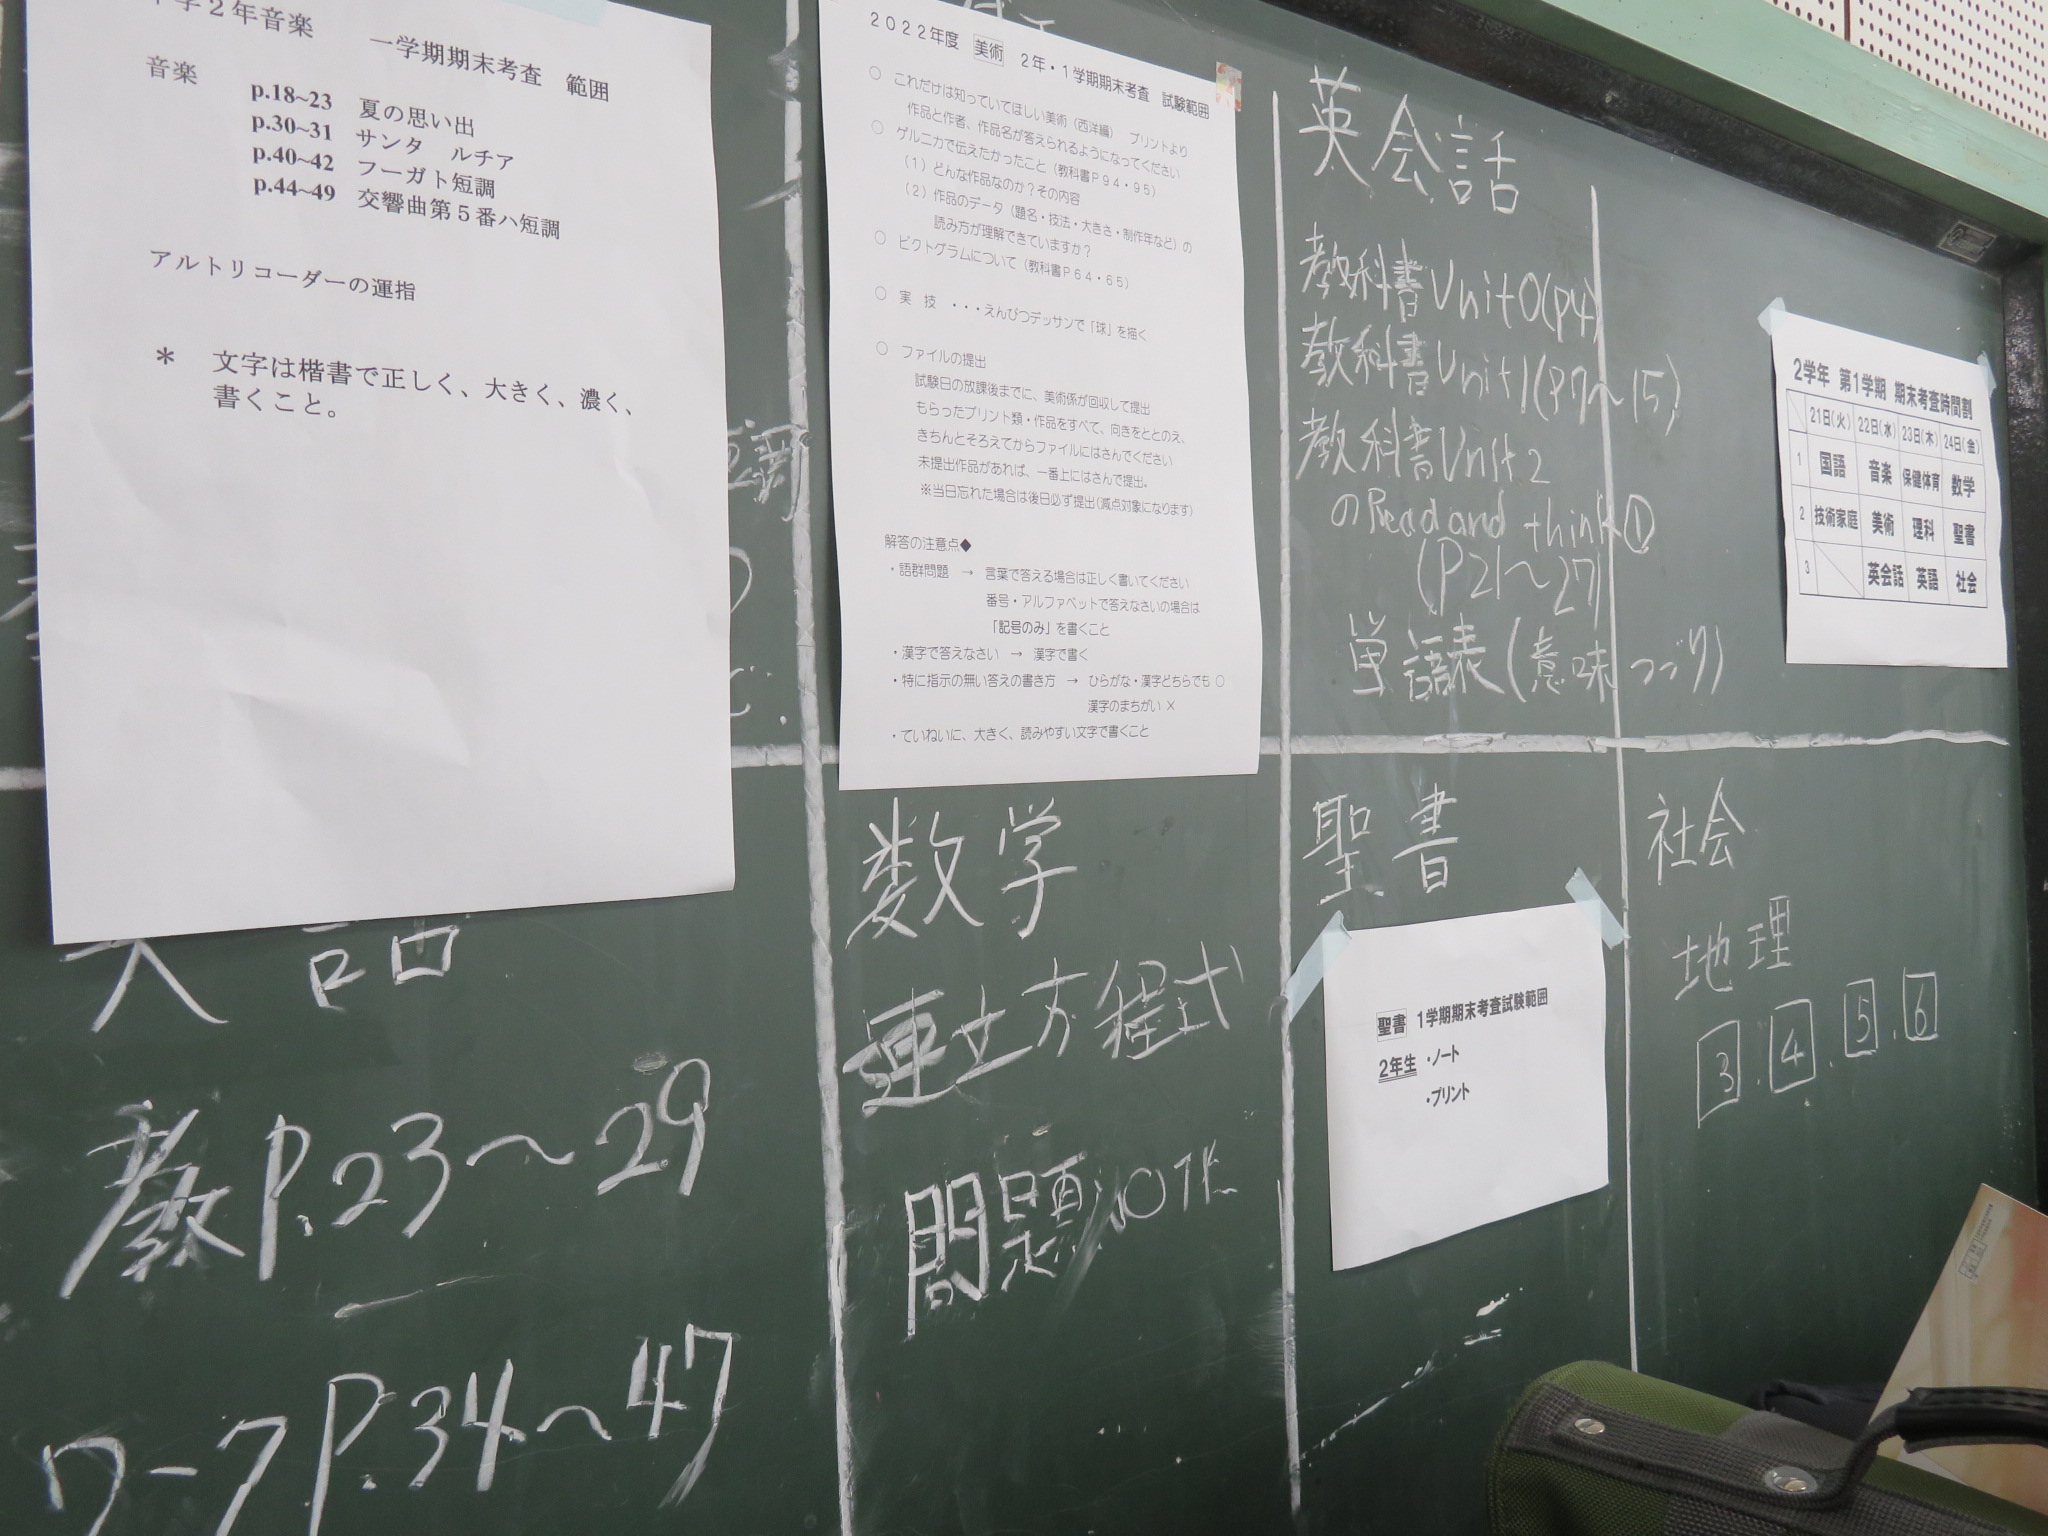 2年音楽 一学期期末考査 範囲
音楽
p.18~23 夏の思い出
p.30~31 サンタ ルチア
p.40~42 フーガト短調
p.44~49 交響曲第5番ハ短調
アルトリコーダーの運指
* 文字は楷書で正しく、大きく、濃く、
書くこと。
2022年度 美術 2年・1学期期末考査 試験範囲
○ これだけは知っていてほしい美術(西洋編) プリントより
作品と作者、作品名が答えられるようになってください
○ ゲルニカで伝えたかったこと(教科書P94・95)
(1)どんな作品なのか?その内容
(2)作品のデータ(題名・技法・大きさ・制作年など)の
読み方が理解できていますか?
○ ピクトグラムについて(教科書P64・65)
○ 実 技 ・・・えんぴつデッサンで「球」を描く
○ ファイルの提出
試験日の放課後までに、美術係が回収して提出
もらったプリント類・作品をすべて、向きをととのえ、
きちんとそろえてからファイルにはさんでください
未提出作品があれば、一番上にはさんで提出。
※当日忘れた場合は後日必ず提出(減点対象になります)
解答の注意点◆
・語群問題 → 言葉で答える場合は正しく書いてください
番号・アルファベットで答えなさいの場合は
「記号のみ」を書くこと
・漢字で答えなさい → 漢字で書く
・特に指示の無い答えの書き方 → ひらがな・漢字どちらでも ○
漢字のまちがい ×
・ていねいに、大きく、読みやすい文字で書くこと
英会話
教科書 Unit0(P4)
教科書 Unit1(P7〜15)
教科書 Unit2
のRead and think①
(P21〜27)
単語表(意味 つづり)
2学年 第1学期 期末考査時間割
21日(火) 22日(水) 23日(木) 24日(金)
1 国語 音楽 保健体育 数学
2 技術家庭 美術 理科 聖書
3 英会話 英語 社会
教P.23〜29
ワークP.34〜47
数学
連立方程式
問題
聖書
聖書 1学期期末考査試験範囲
2年生 ・ノート
・プリント
社会
地理
3.4.5.6